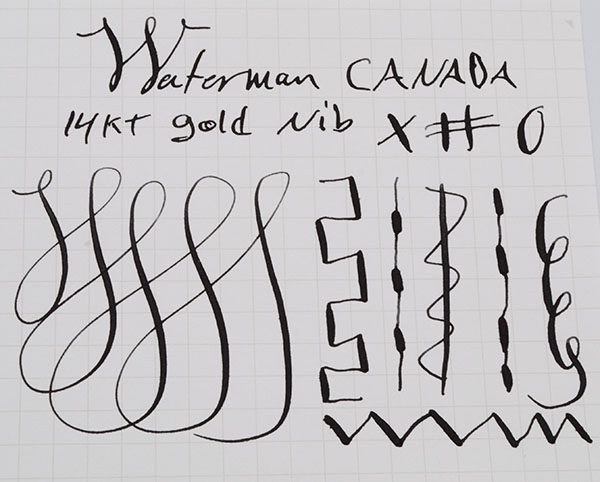 Waterman CANADA
14kt gold Nib X # 0